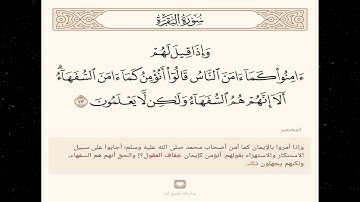 سُورَةُ البَقَرَةِ
وَإِذَا قِيلَ لَهُمۡ
ءَامِنُواْ كَمَآ ءَامَنَ ٱلنَّاسُ قَالُوٓاْ أَنُؤۡمِنُ كَمَآ ءَامَنَ ٱلسُّفَهَآءُۗ
أَلَآ إِنَّهُمۡ هُمُ ٱلسُّفَهَآءُ وَلَٰكِن لَّا يَعۡلَمُونَ ١٣
المختصر
وإذا أمروا بالإيمان كما آمن أصحاب محمد صلى الله عليه وسلم؛ أجابوا على سبيل
الاستنكار والاستهزاء بقولهم: أنؤمن كإيمان خفاف العقول؟! والحق أنهم هم السفهاء،
ولكنهم يجهلون ذلك.
بواسطة تطبيق آية